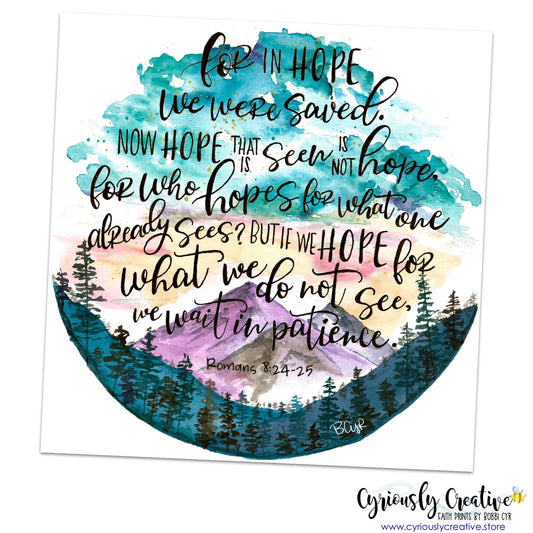 for IN HOPE
we were saved.
NOW HOPE THAT IS seen IS NOT hope.
for who hopes for what one
already sees? BUT IF WE HOPE for
what we do not see,
we wait in patience.
Romans 8:24-25
BCyR
Cyriously Creative
FAITH PRINTS BY BOBBI CYR
www.cyriouslycreative.store